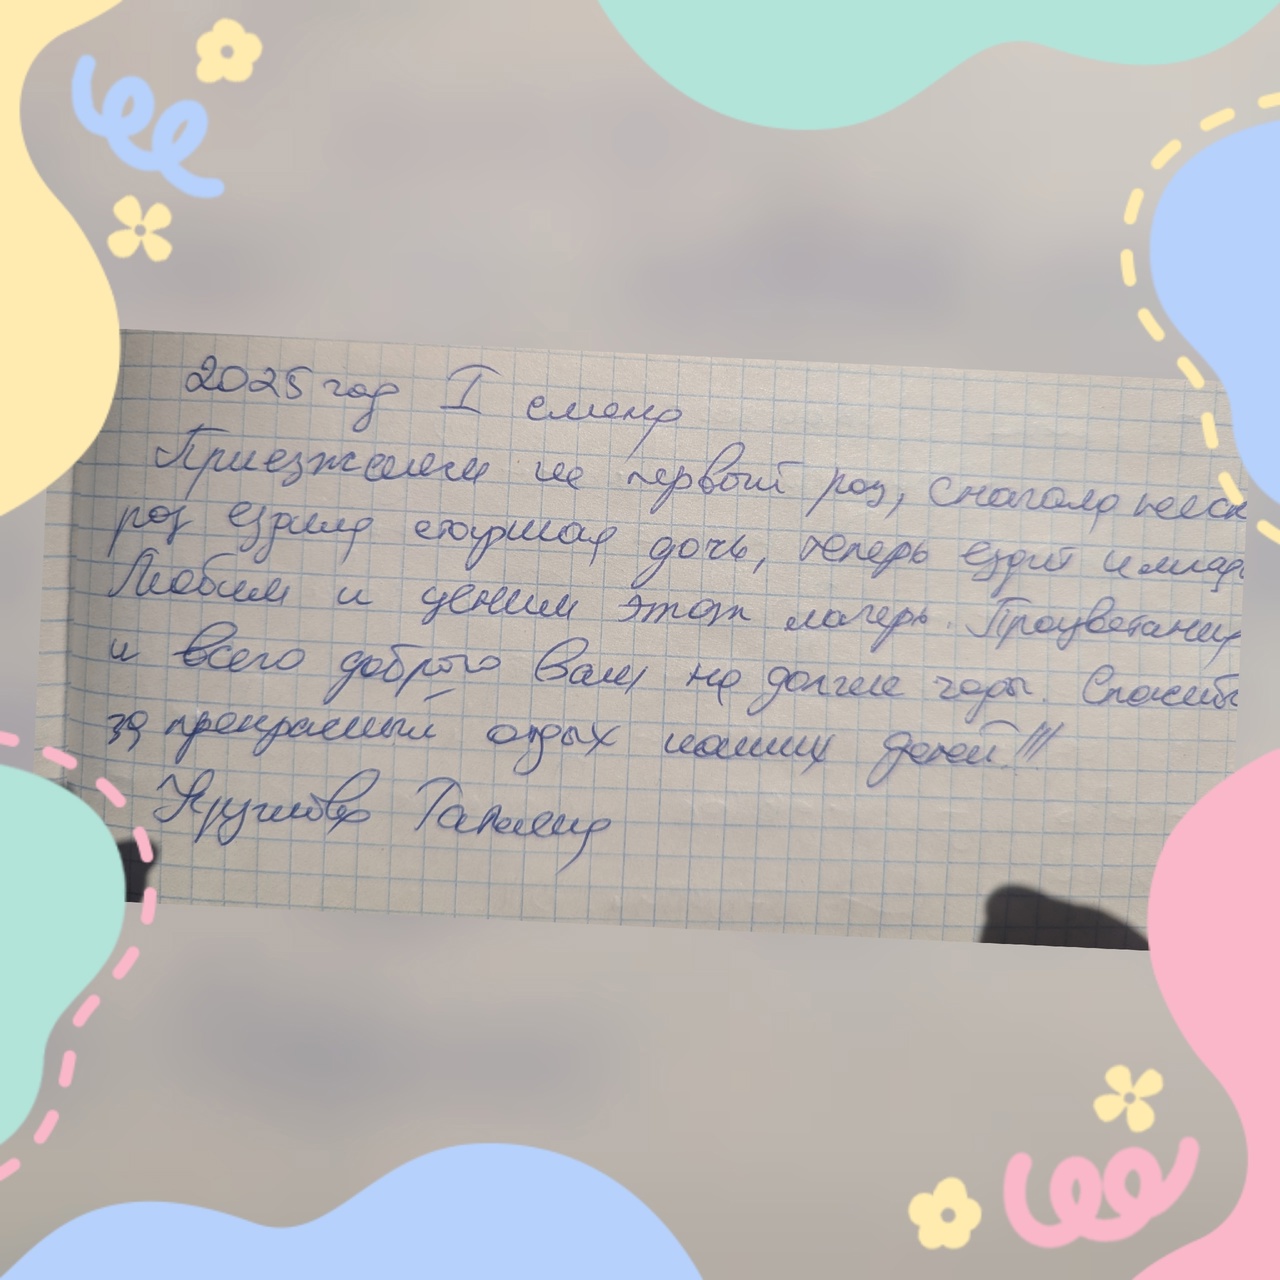 2025 год I смена
Приезжаем не первый раз, сначала неск
раз ездила старшая дочь, теперь ездит и млад
Любим и ценим этот лагерь. Процветания
и всего доброго Вам на долгие годы. Спасибо
за прекрасный отдых наших детей!!!
Круглова Татьяна